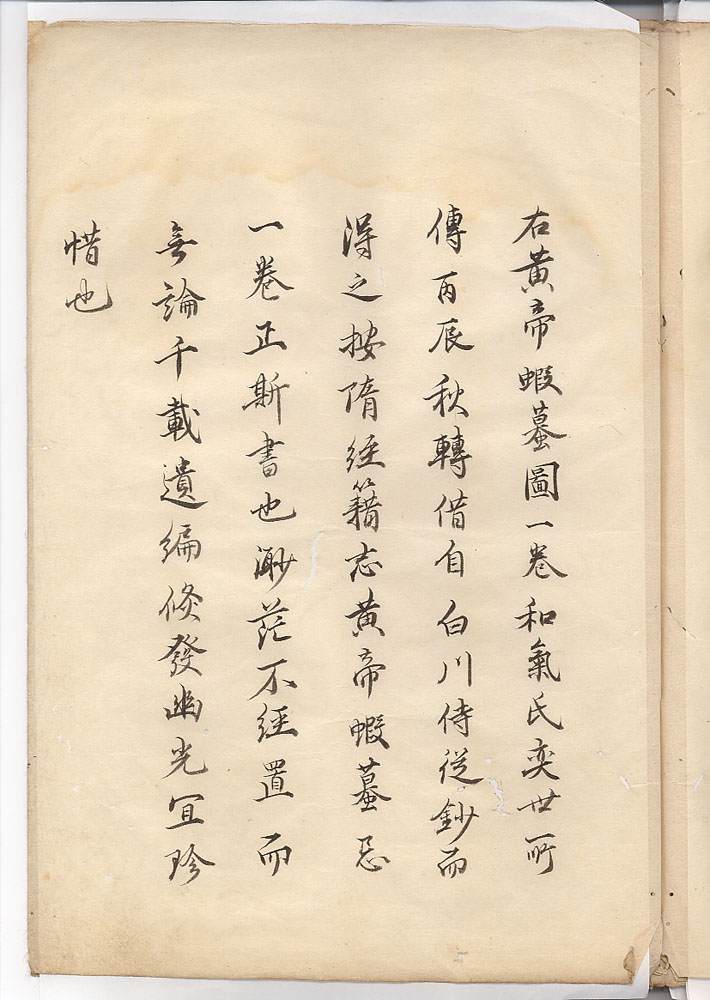 右黃帝蝦蟇圖一卷和氣氏奕世所
傳丙辰秋轉借自白川侍從鈔而
得之按隋經籍志黃帝蝦蟇忌
一卷正斯書也渺茫不經置而
無論千載遺編倐發幽光宜珍
惜也